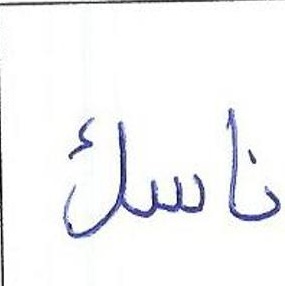 ناسك